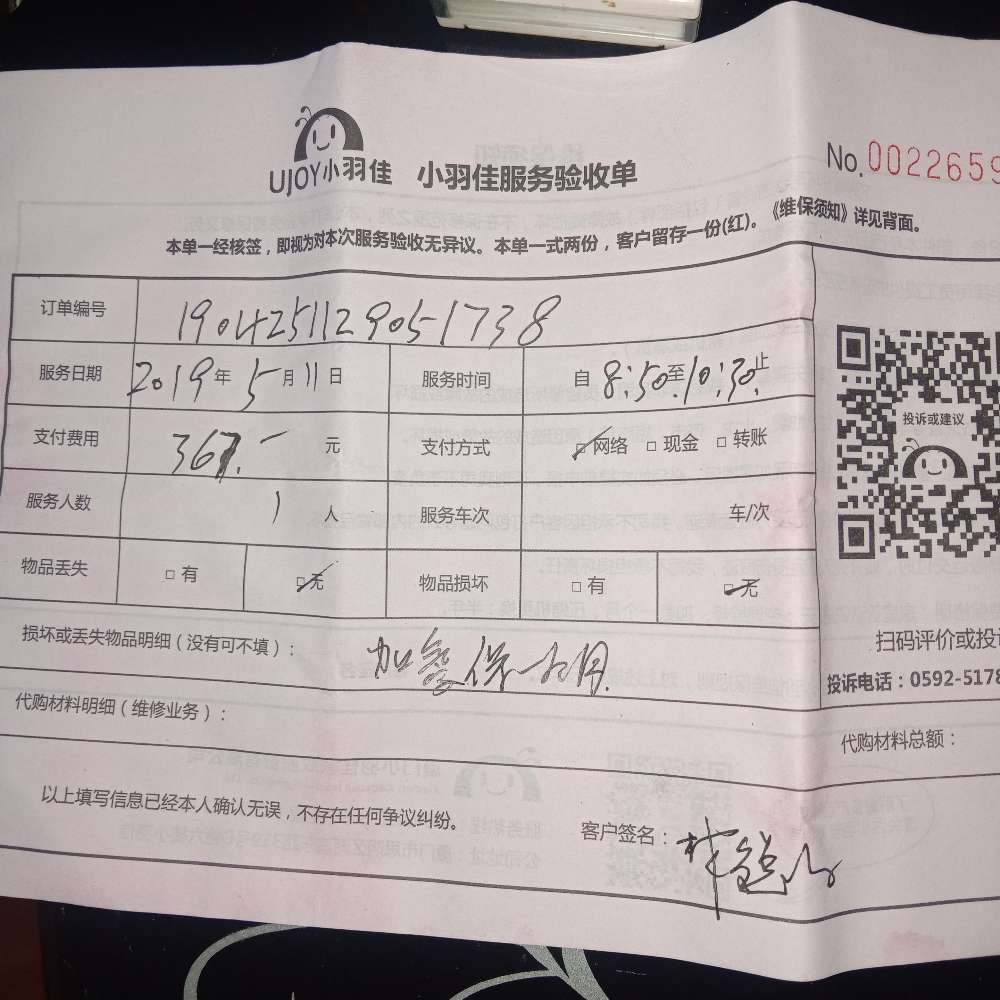 UJOY小羽佳 小羽佳服务验收单
No.0022659
本单一经核签，即视为对本次服务验收无异议。本单一式两份，客户留存一份(红)。《维保须知》详见背面。
订单编号 190425112905-1738
服务日期 2019年5月11日 服务时间 自8:50至10:30止
支付费用 367.- 元 支付方式 □网络 □现金 □转账
服务人数 1人 服务车次 车/次
物品丢失 □有 □无 物品损坏 □有 □无
损坏或丢失物品明细（没有可不填）：
代购材料明细（维修业务）：
代购材料总额：
以上填写信息已经本人确认无误，不存在任何争议纠纷。
客户签名：
投诉或建议
扫码评价或投
投诉电话：0592-5178